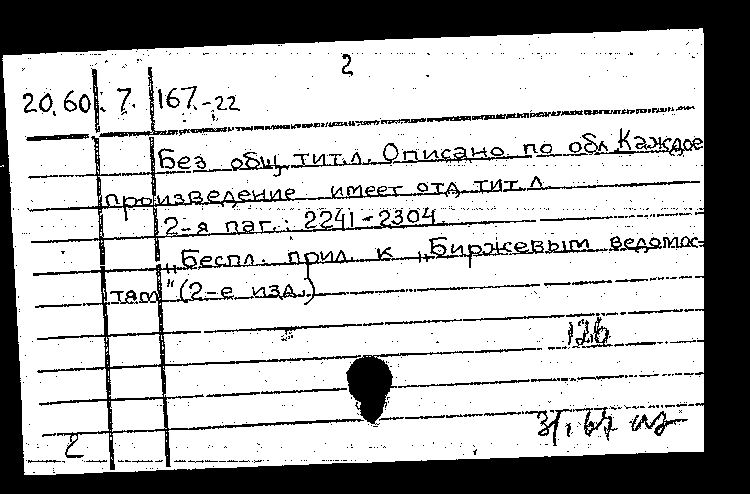 2
20.60. 7. 167-22
Без общ. тит.л. Описано по обл. Каждое
произведение имеет отд. тит. л.
2-я паг.: 2241-2304.
„Беспл. прил. к „Биржевым ведомос-
тям" (2-е изд.)
126
31. 67
2